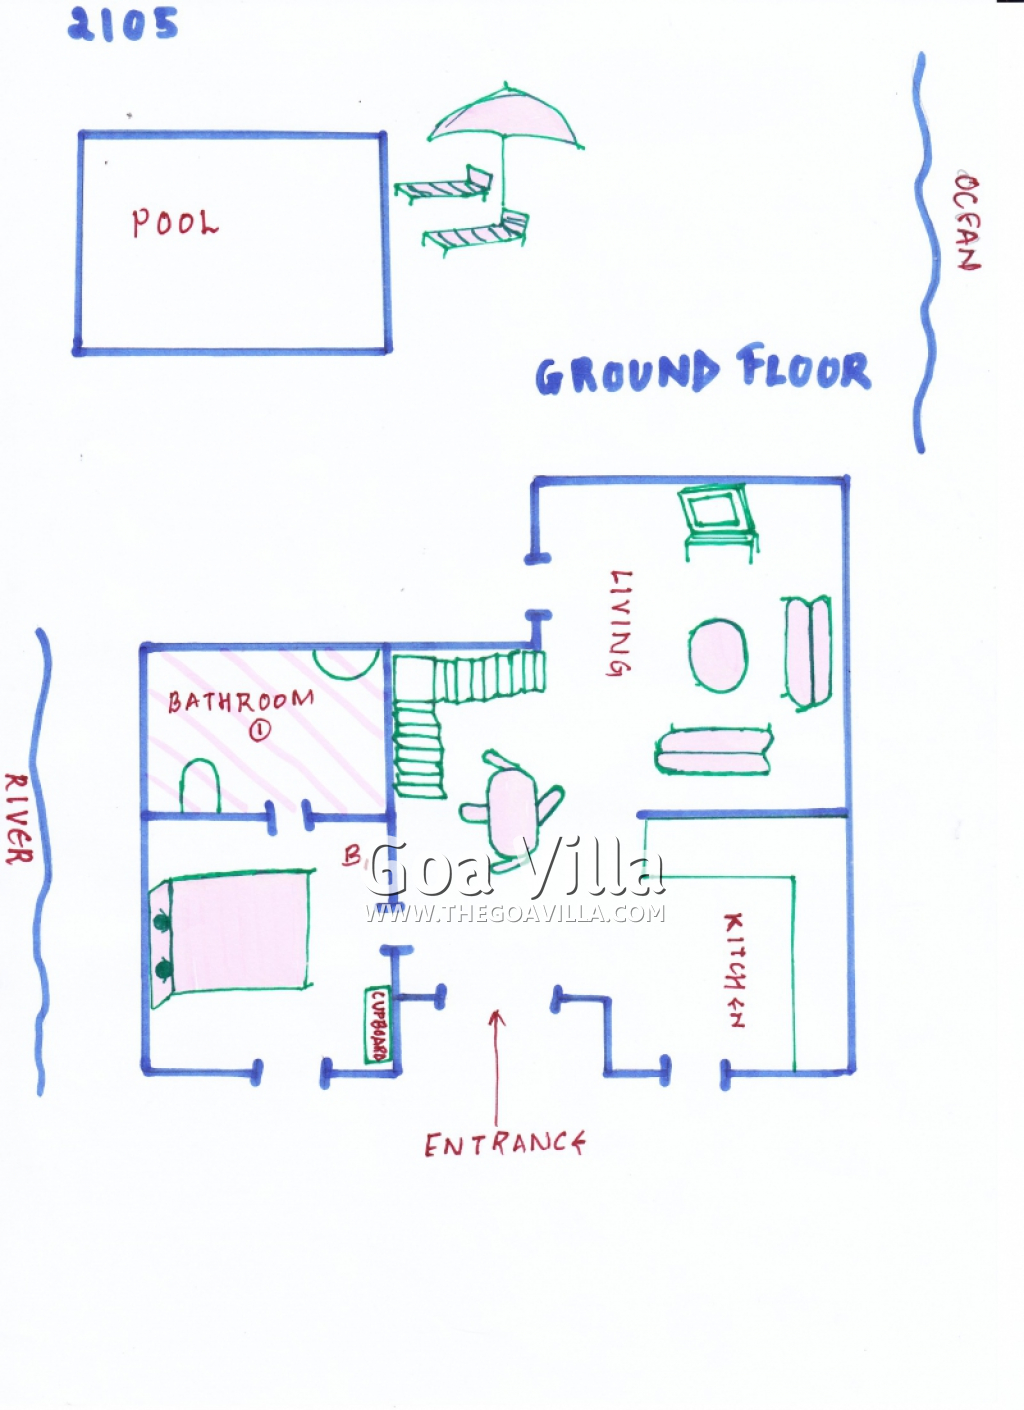 2105
OCEAN
POOL
GROUND FLOOR
LIVING
BATHROOM
1
RIVER
B1
Goa Villa
WWW.THEGOAVILLA.COM
KITCHEN
CUPBOARD
ENTRANCE